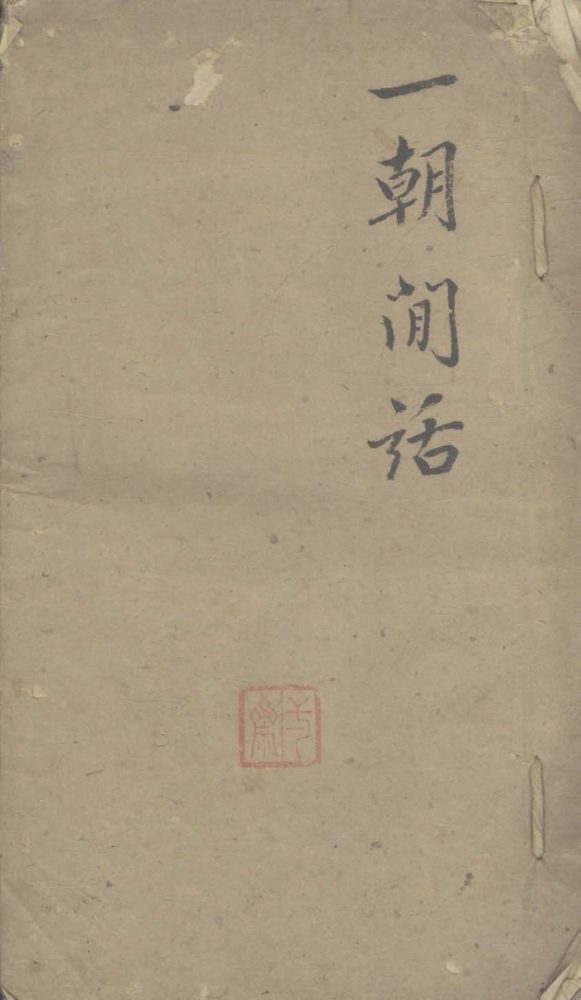 一朝閒話